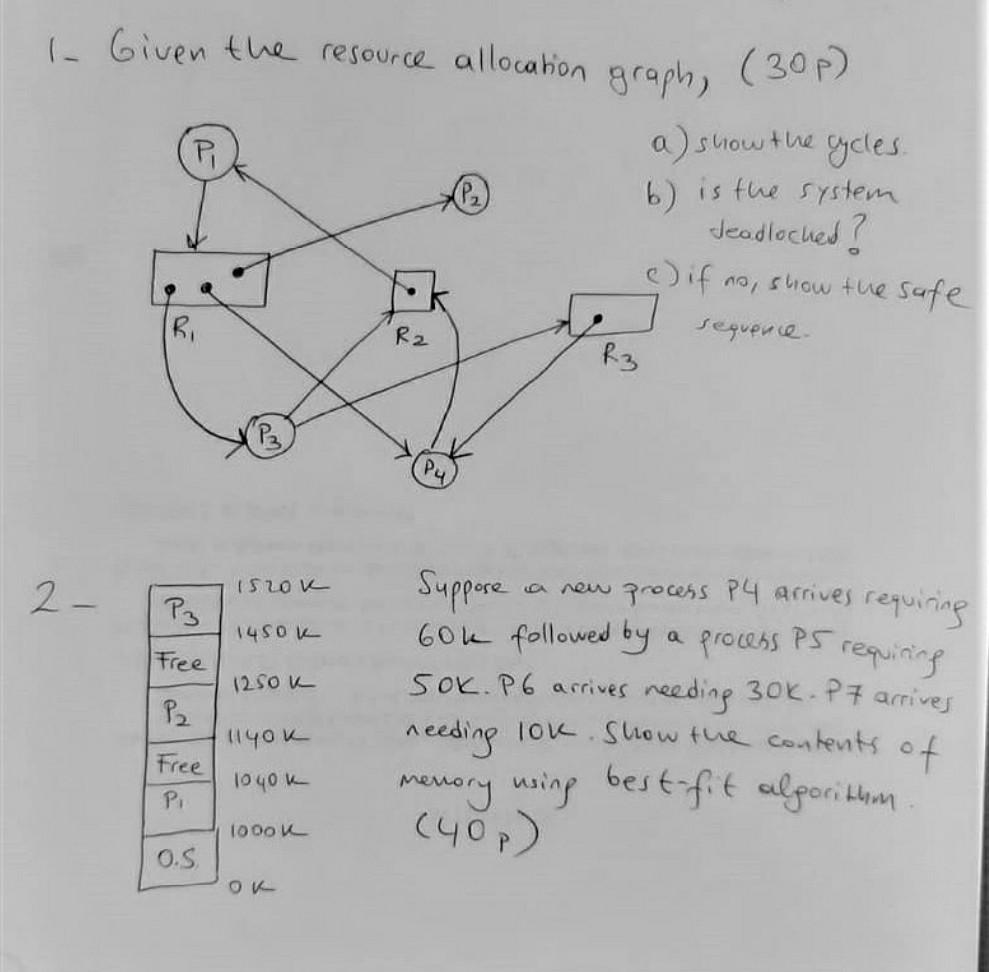 1- Given the resource allocation graph, (30p)
a) show the cycles.
b) is the system
deadlocked?
c) if no, show the safe
sequence.
P1
P2
R1
R2
R3
P3
P4
2-
P3
1520K
1450K
Free
1250K
P2
1140K
Free
1040K
P1
1000K
O.S.
0K
Suppose a new process P4 arrives requiring
60K followed by a process P5 requiring
50K. P6 arrives needing 30K. P7 arrives
needing 10K. Show the contents of
memory using best-fit algorithm.
(40p)